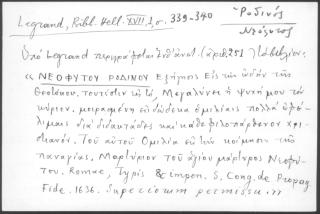 Legrand, Bibl. Hell. XVII, 3, σ. 339-340
Ῥοδινός
Νεόφυτος
Ὑπὸ Legrand περιγράφεται ἐνθ' ἀνωτ. (ἀριθ. 251)
"ΝΕΟΦΥΤΟΥ ΡΟΔΙΝΟΥ Εξήγησις Εἰς τὴν ᾠδὴν τῆς
Θεοτόκου, τουτέστιν εἰς τό, Μεγαλύνει ἡ ψυχή μου τὸν
κύριον, μοιρασμένη εἰς δώδεκα ὁμιλίαις πολλὰ ὠφέ-
λιμαις διὰ διδαχτάδες καὶ κάθε φιλοπάρθενον χρισ-
τιανόν. Τοῦ αὐτοῦ Ὁμιλία εἰς τὴν κοίμησιν τῆς
παναγίας, Μαρτύριον τοῦ ἁγίου μάρτυρος Νεοφύ-
του. Romae, Typis & impen. S. Cong. de Propag.
Fide. 1636. Superiorum permissu."